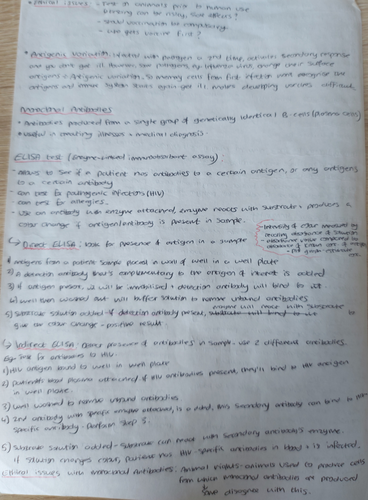 Ethical issues - Test on animals prior to human use
- Testing can be risky, side effects?
- should vaccination be compulsory?
- who gets vaccine first?
* Antigenic Variation: infected with pathogen a 2nd time, activates secondary response
and you don't get ill. However, some pathogens, eg influenza virus, change their surface
antigens = Antigenic variation, so memory cells from first infection won't recognise new
antigens and immune system starts again = get ill. Makes developing vaccines difficult.
Monoclonal Antibodies
• Antibodies produced from a single group of genetically identical B-cells (plasma cells)
• Useful in treating illnesses + medical diagnosis.
ELISA test (Enzyme-linked immunosorbent assay):
- allows to see if a patient has antibodies to a certain antigen, or any antigens
to a certain antibody
- can test for pathogenic infections (HIV)
- can test for allergies.
- use an antibody with enzyme attached, enzyme reacts with substrate + produces a
color change if antigen/antibody is present in sample.
- intensity of colour measured by
↳ Direct ELISA: look for presence of antigen in a sample
1) Antigens from a patient sample placed in a well of a well plate
2) A detection antibody that's complementary to the antigen of interest is added
3) If antigen present, it will be immobilised + detection antibody will bind to it
4) Well then washed out with buffer solution to remove unbound antibodies
5) Substrate solution added - if detection antibody present, enzyme will react with substrate
to give our colour change - positive result.
↳ Indirect ELISA: detect presence of antibodies in sample. use 2 different antibodies.
Eg: test for antibodies to HIV.
1) HIV antigen bound to well in well plate
2) Patient's blood plasma added and if HIV antibodies present, they'll bind to HIV antigen
in well plate.
3) Well washed to remove unbound antibodies
4) 2nd antibody with specific enzyme attached, is added, this secondary antibody can bind to HIV-
specific antibody - perform step 3.
5) Substrate solution added - substrate can react with secondary antibody's enzyme.
if solution changes colour, patient has HIV-specific antibodies in blood + is infected.
Ethical issues with monoclonal antibodies: Animal rights: animals used to produce cells
from which monoclonal antibodies are produced
some disagree with this.